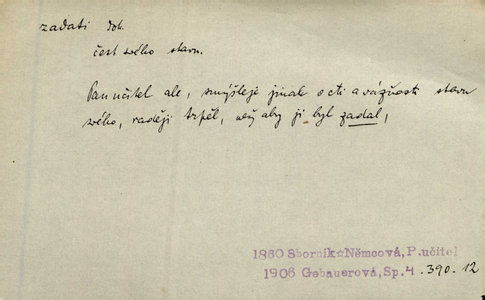 zadati dok.
čest svého stavu.
Pan učitel ale, smýšleje jinak o cti a vážnosti stavu
svého, raději trpěl, než aby ji byl zadal,
1860 Sborník☆Němcová,P.učitel
1906 Gebauerová,Sp.4.390.12